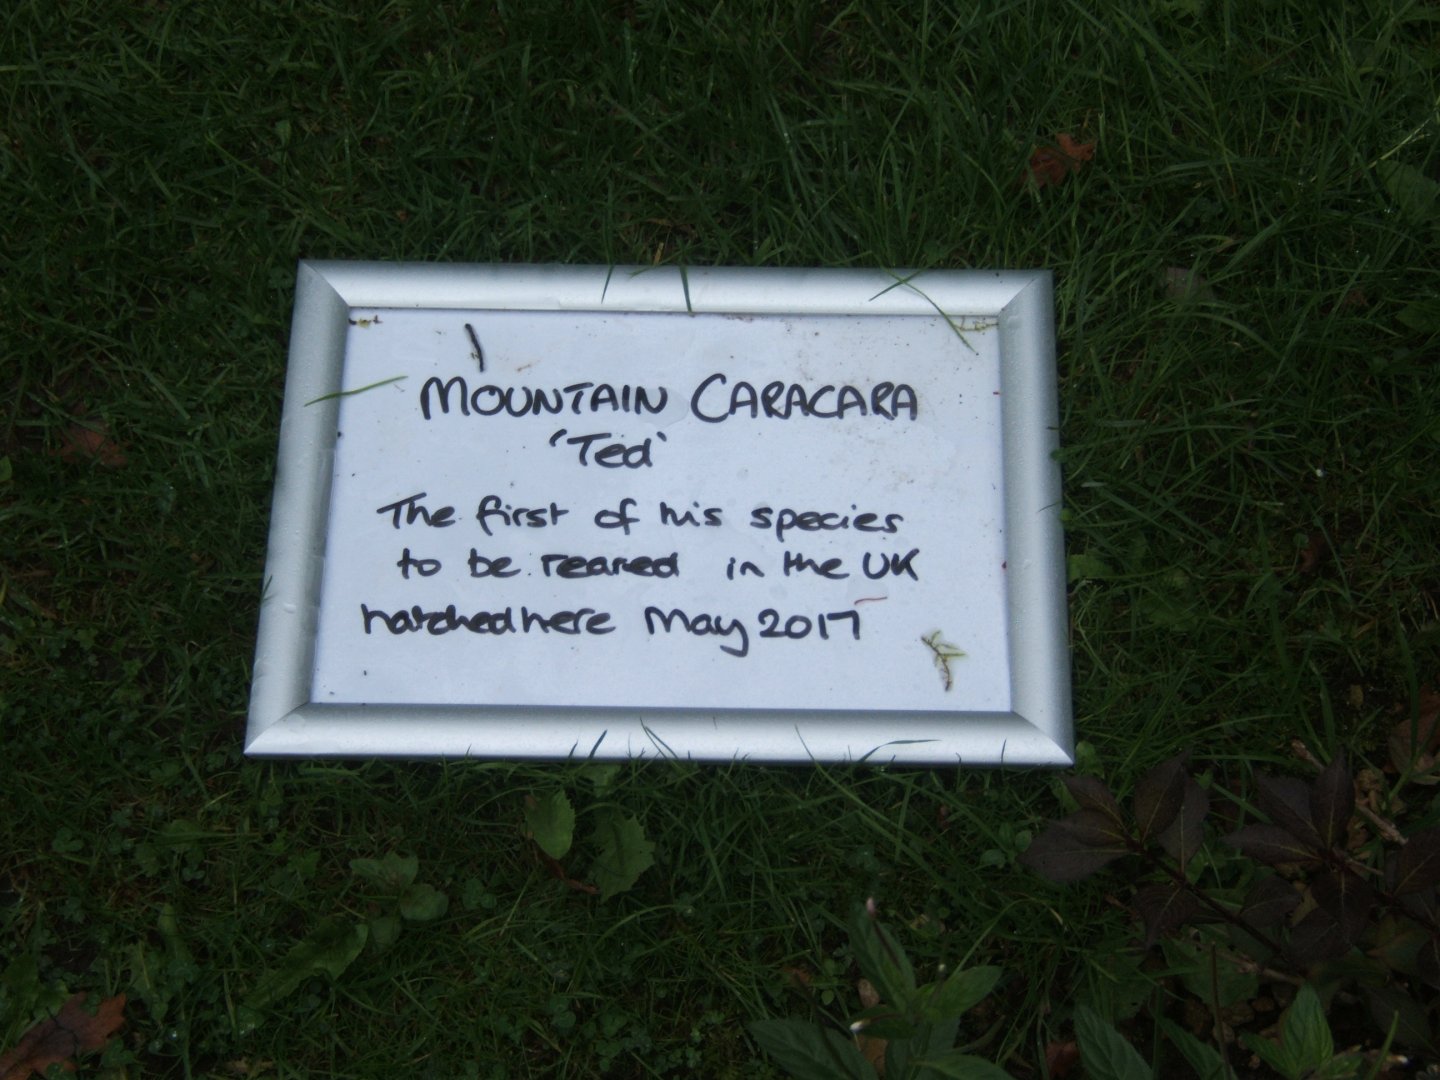 MOUNTAIN CARACARA
'Ted'
The first of his species
to be reared in the UK
hatched here May 2017